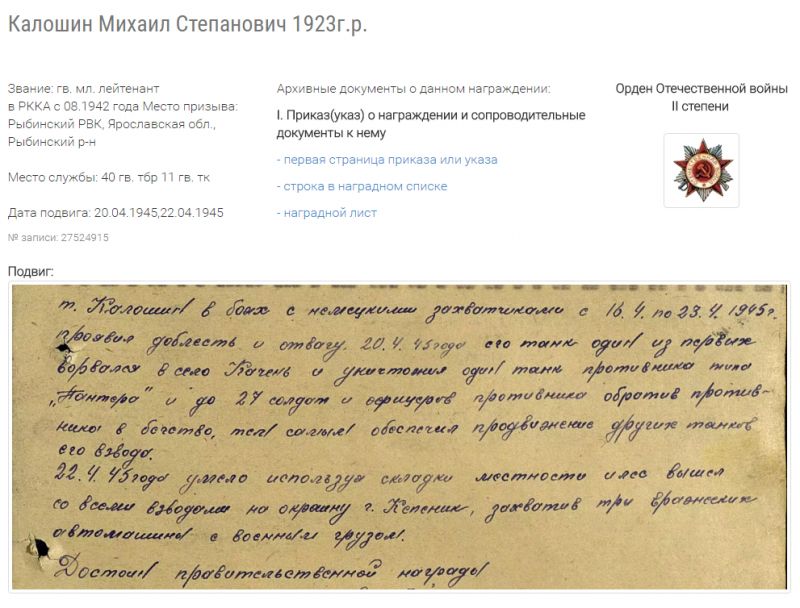 Калошин Михаил Степанович 1923г.р.
Звание: гв. мл. лейтенант
в РККА с 08.1942 года Место призыва:
Рыбинский РВК, Ярославская обл.,
Рыбинский р-н
Место службы: 40 гв. тбр 11 гв. тк
Дата подвига: 20.04.1945,22.04.1945
№ записи: 27524915
Архивные документы о данном награждении:
I. Приказ(указ) о награждении и сопроводительные
документы к нему
- первая страница приказа или указа
- строка в наградном списке
- наградной лист
Орден Отечественной войны
II степени
Подвиг:
т. Калошин в боях с немецкими захватчиками с 16.4. по 23.4. 1945г.
проявил доблесть и отвагу. 20.4.45года его танк один из первых
ворвался в село Качень и уничтожил один танк противника типа
„Пантера" и до 27 солдат и офицеров противника обратив против-
ника в бегство, тем самым обеспечил продвижение других танков
его взвода.
22.4.45года умело используя складки местности и лес вышел
со всеми взводами на окраину г. Кепеник, захватив три вражеских
автомашины с военным грузом.
Достоин правительственной награды